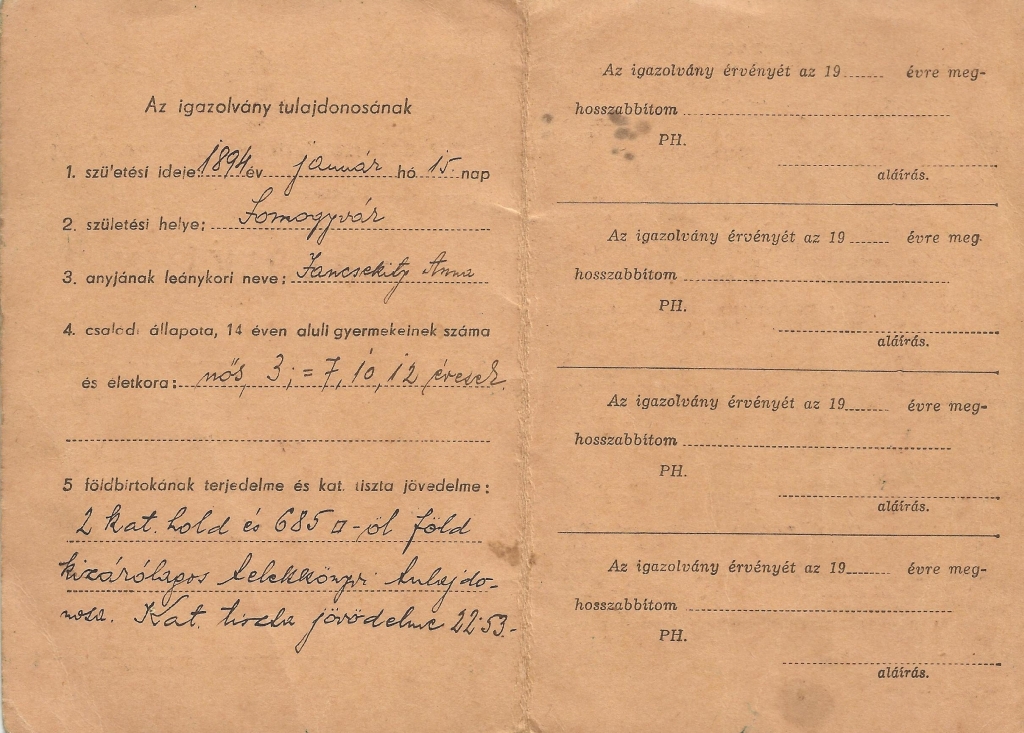 Az igazolvány tulajdonosának
1. születési ideje: 1894 év január hó 15. nap
2. születési helye: Somogyvár
3. anyjának leánykori neve: Jancsekity Anna
4. családi állapota, 14 éven aluli gyermekeinek száma
és életkora: nős, 3; = 7, 10, 12 évesek.
5 földbirtokának terjedelme és kat. tiszta jövedelme:
2 kat. hold és 685 □-öl föld
kizárólagos telekkönyvi tulajdo-
nosa. Kat. tiszta jövödelme 22·53.-
Az igazolvány érvényét az 19...... évre meg-
hosszabbítom
PH.
aláírás.
Az igazolvány érvényét az 19...... évre meg-
hosszabbítom
PH.
aláírás.
Az igazolvány érvényét az 19...... évre meg-
hosszabbítom
PH.
aláírás.
Az igazolvány érvényét az 19...... évre meg-
hosszabbítom
PH.
aláírás.